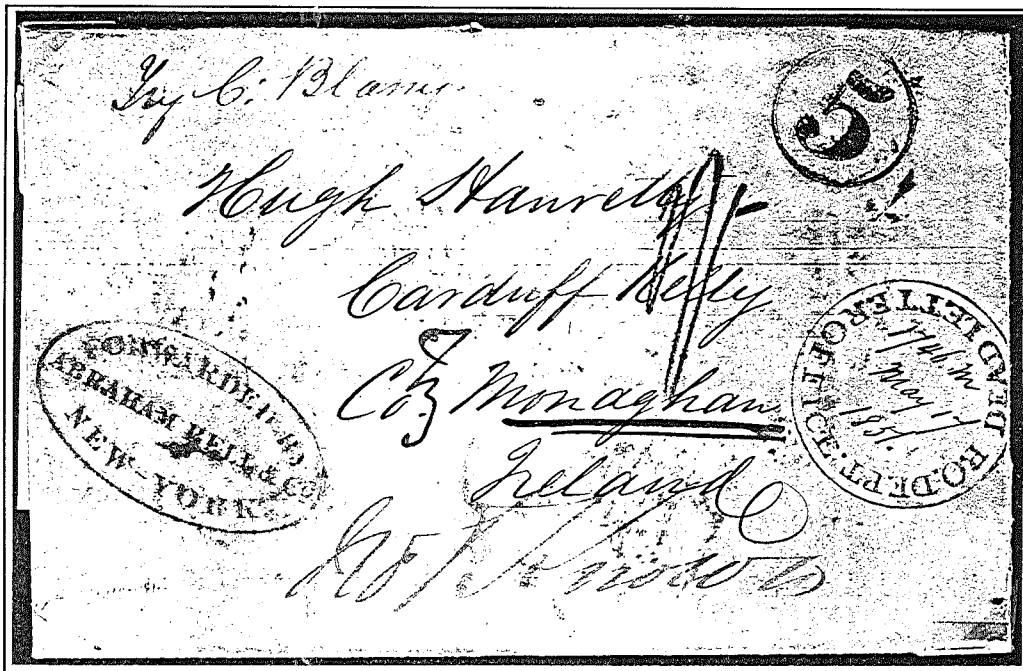 Try C: Blaney
5
Hugh Hanretty
Carduff Kelly
Co Monaghan
Ireland
FORWARDED BY
ABRAHAM BELL & Co
NEW-YORK
P.O. DEPT. DEAD LETTER OFFICE
May 17
1851
Not known